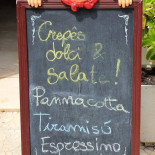 Crepes
dolci &
salate!
Pannacotta
Tiramisú
Espressino